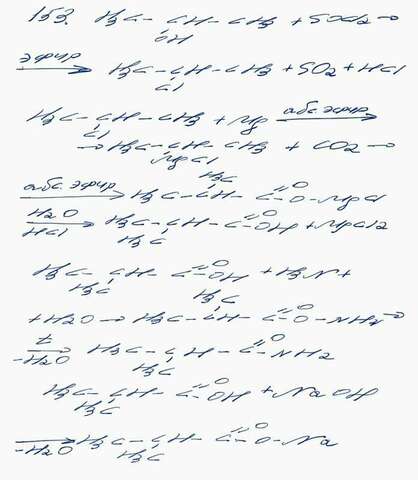 153. H₃C – CH – CH₃ + SOCl₂ →
OH
эфир → H₃C – CH – CH₃ + SO₂ + HCl
Cl
H₃C – CH – CH₃ + Mg абс. эфир →
Cl
→ H₃C – CH – CH₃ + CO₂ →
MgCl
H₃C
абс. эфир → H₃C – CH – C =O O – MgCl
H₂O HCl → H₃C – CH – C =O OH + MgCl₂
H₃C
H₃C – CH – C =O OH + H₃N +
H₃C
H₃C
+ H₂O → H₃C – CH – C =O O – NH₄ →
t -H₂O → H₃C – CH – C =O NH₂
H₃C
H₃C – CH – C =O OH + NaOH
H₃C
-H₂O → H₃C – CH – C =O O – Na
H₃C